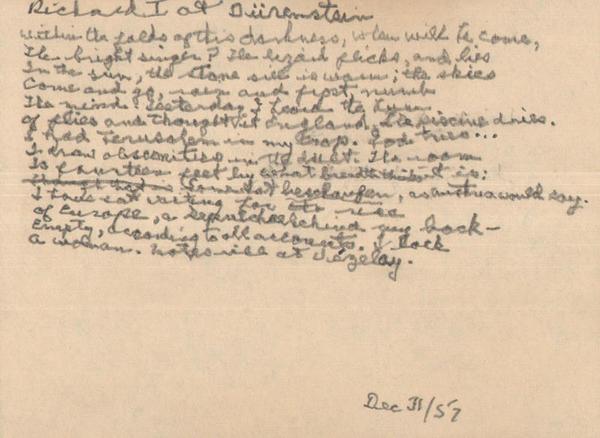 Richard I at Dürenstein
Within the folds of this darkness, when will he come,
The bright singer? The lizard flicks, and lies
In the sun, the stone sill is warm; the skies
Come and go, rain and frost, numb
The mind. Yesterday I heard the hum
of flies and thought it England, the piscine dries.
I had Jerusalem in my God tries...
I draw obscenities in the dust. The room
Is fourteen feet by what breadth is;
somewhat beschaufen, as would say.
I have sat waiting for the rise
of Europe, a sepulchre behind my back—
Empty, according to all accounts. I lack
A woman. at Vézelay.
Dec 31/57